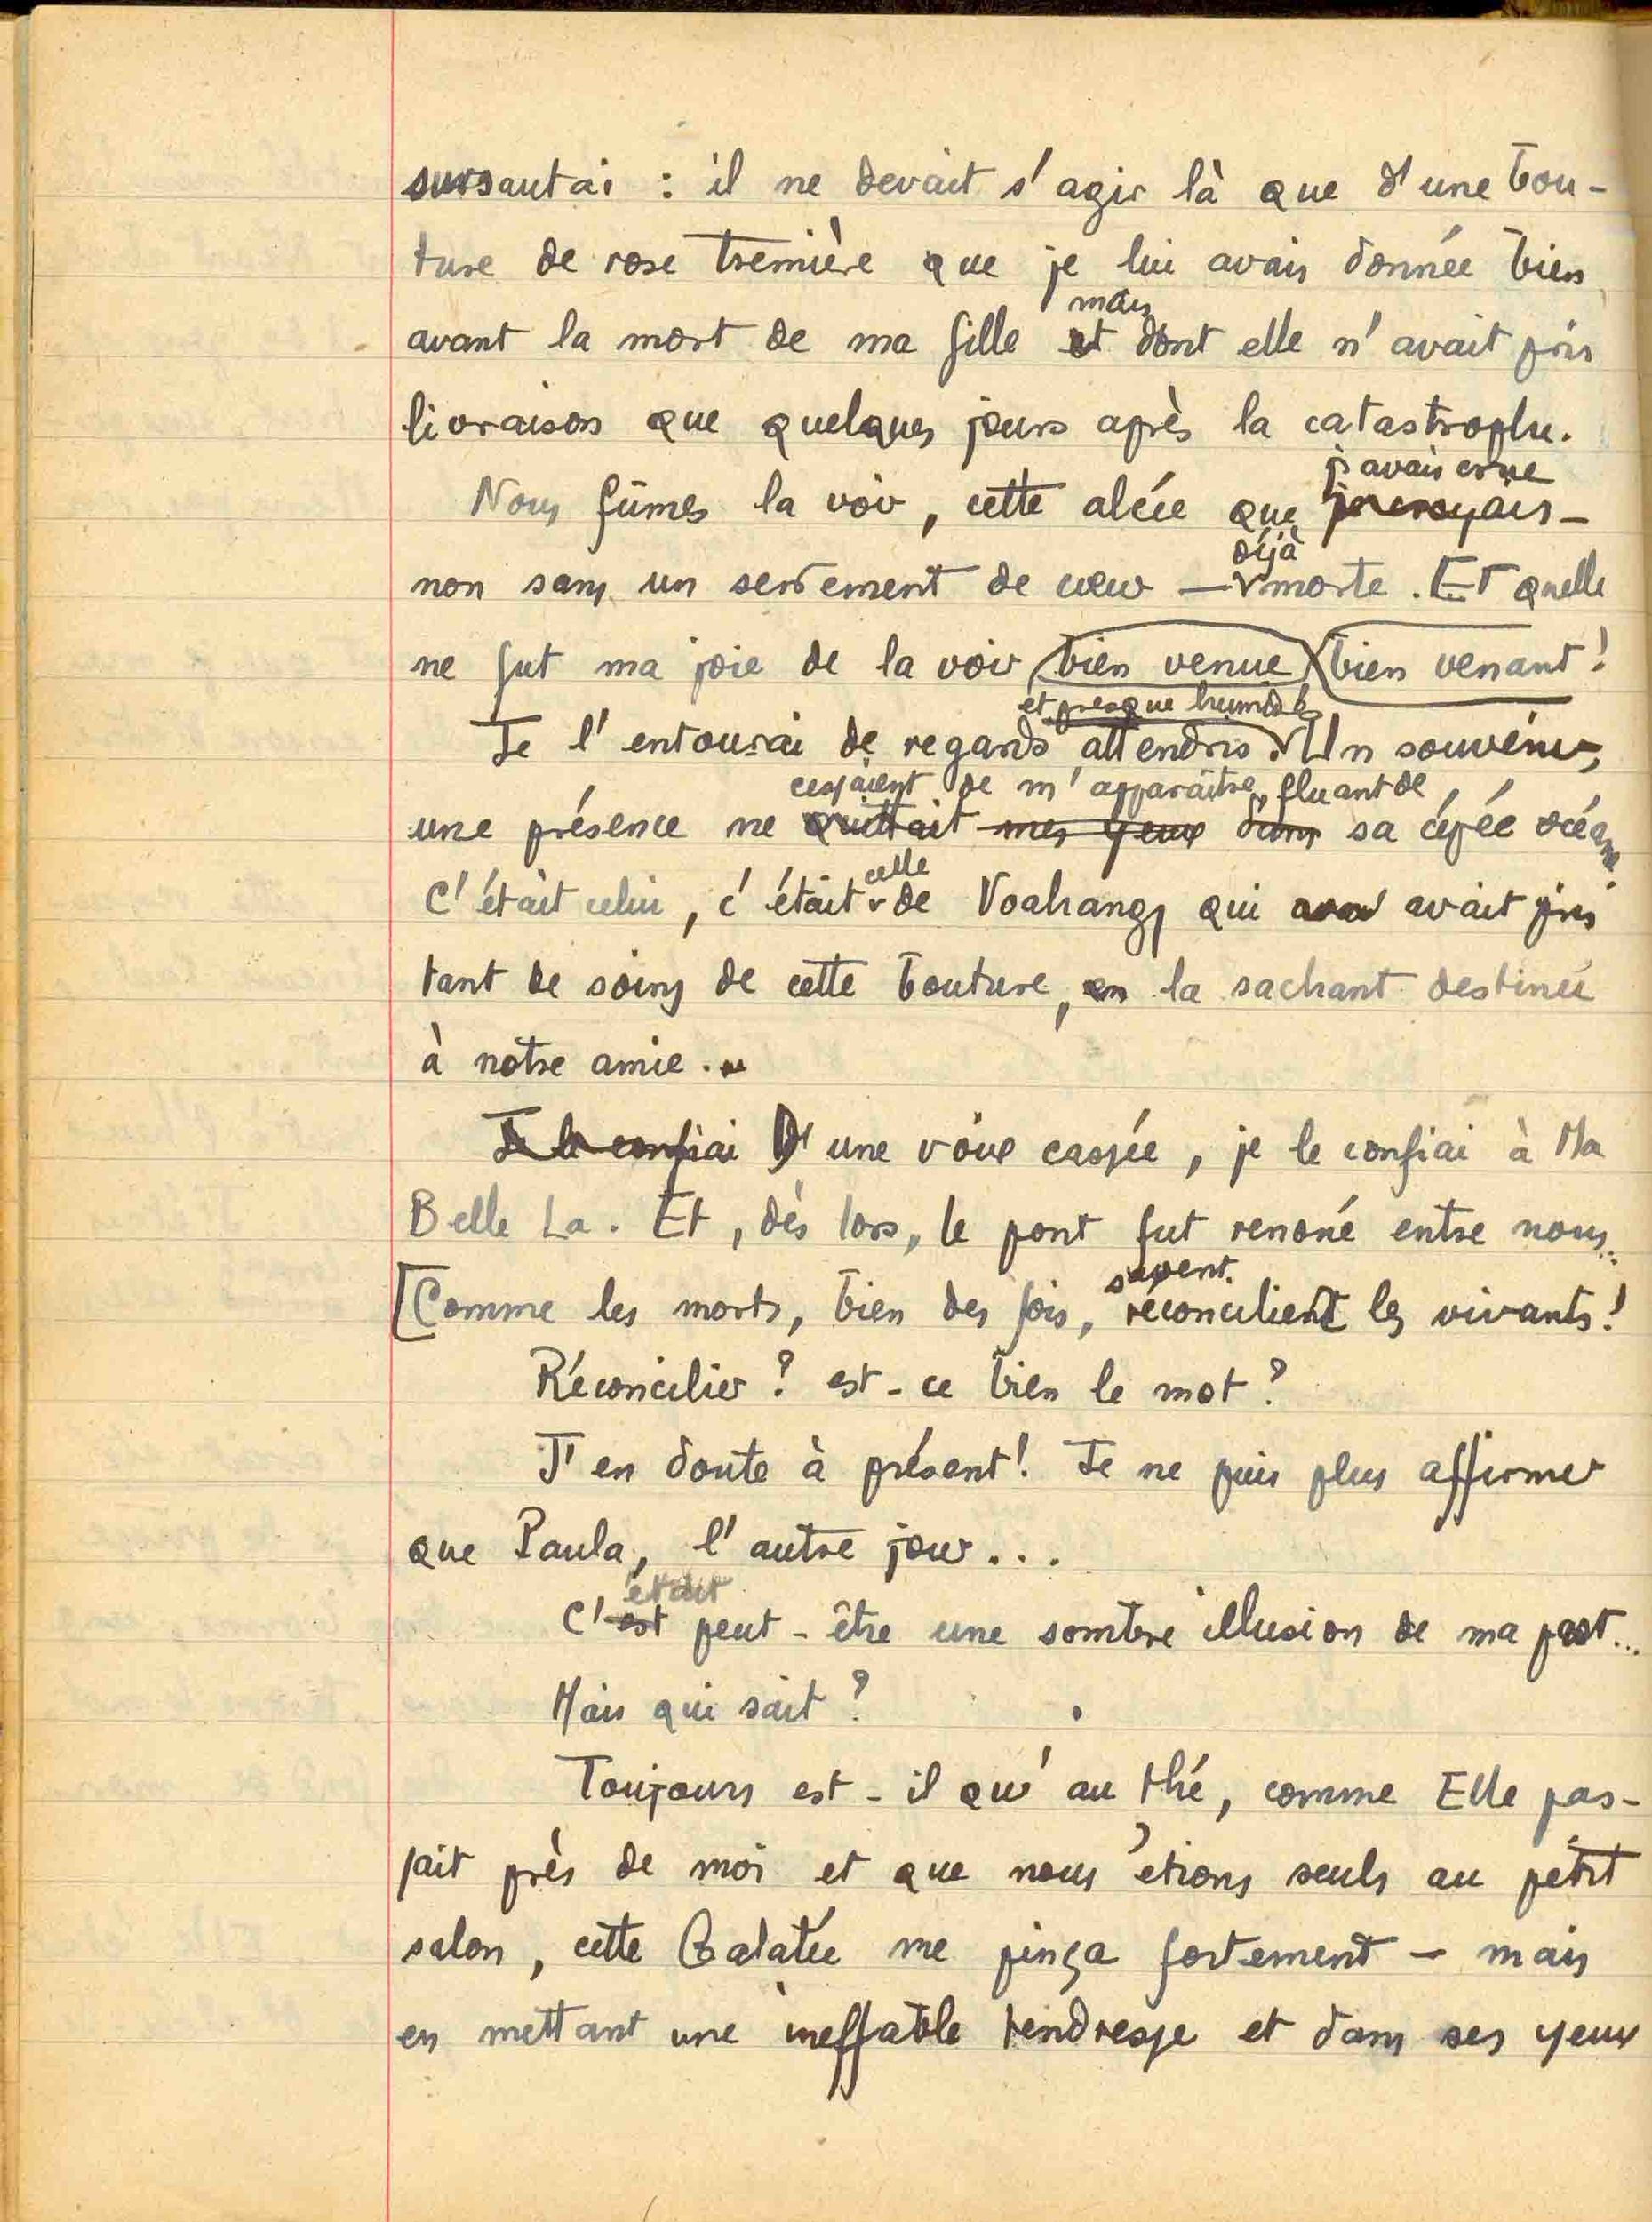 sursautai : il ne devait s'agir là que d'une bou-
ture de rose trémière que je lui avais donnée bien
mais
avant la mort de ma fille et dont elle n'avait pris
livraison que quelques jours après la catastrophe.
j'avais crue
Nous fûmes la voir, cette alcée que je croyais –
déjà
non sans un serrement de cœur – morte. Et quelle
ne fut ma joie de la voir bien venue bien venant !
et presque humides
Je l'entourai de regards attendris. Un souvenir,
cessaient de m'apparaître, fluant de
une présence ne quittait mes yeux dans sa cépée
C'était celui, c'était celle de Voahangy qui avait pris
tant de soins de cette bouture, en la sachant destinée
à notre amie.
Je le confiai D'une voix cassée, je le confiai à Ma
Belle La. Et, dès lors, le pont fut renoué entre nous...
savent
[Comme les morts, bien des fois, réconcilient les vivants !
Réconcilier ? est-ce bien le mot ?
J'en doute à présent ! Je ne puis plus affirmer
que Paula, l'autre jour...
était
C'est peut-être une sombre illusion de ma part...
Mais qui sait ?
Toujours est-il qu'au thé, comme Elle pas-
sait près de moi et que nous étions seuls au petit
salon, cette Galatée me pinça fortement – mais
en mettant une ineffable tendresse et dans ses yeux